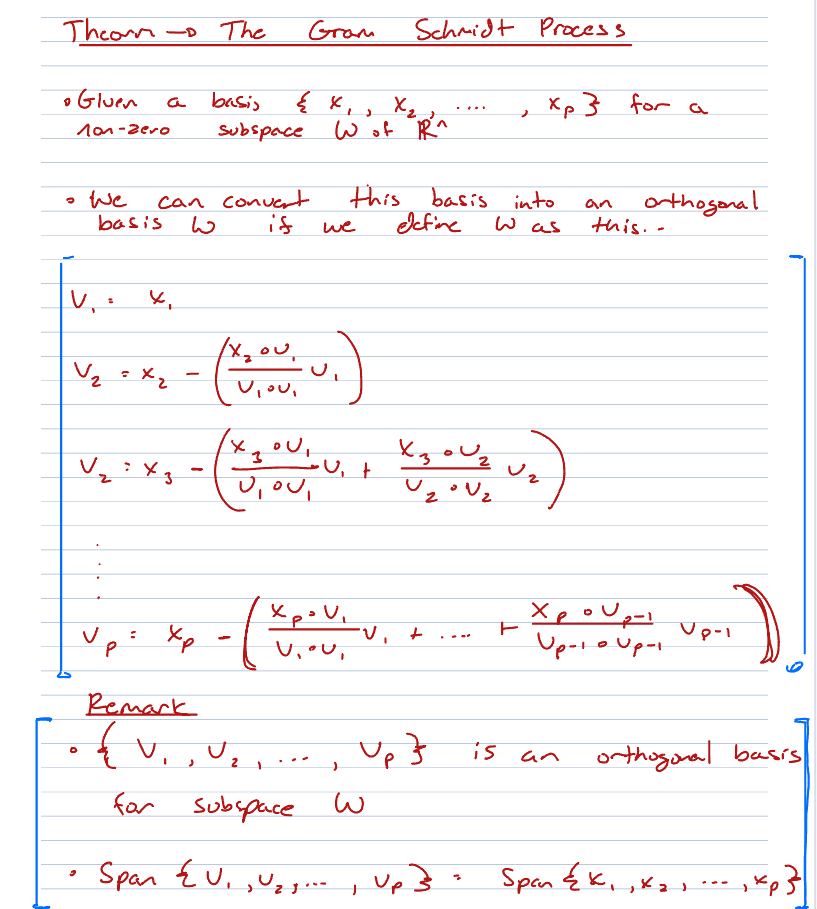 Theorm → The Gram Schmidt Process
• Given a basis { x₁ , x₂ , .... , xₚ } for a
non-zero subspace W of ℝⁿ
• We can convert this basis into an orthogonal
basis W if we define W as this..
V₁ = x₁
V₂ = x₂ - ( (x₂ ∘ V₁)/(V₁ ∘ V₁) V₁ )
V₂ = x₃ - ( (x₃ ∘ V₁)/(V₁ ∘ V₁) V₁ + (x₃ ∘ V₂)/(V₂ ∘ V₂) V₂ )
Vₚ = xₚ - ( (xₚ ∘ V₁)/(V₁ ∘ V₁) V₁ + .... + (xₚ ∘ Vₚ₋₁)/(Vₚ₋₁ ∘ Vₚ₋₁) Vₚ₋₁ )
Remark
• { V₁ , V₂ , ... , Vₚ } is an orthogonal basis
for subspace W
• Span { V₁ , V₂ , ... , Vₚ } = Span { x₁ , x₂ , ... , xₚ }